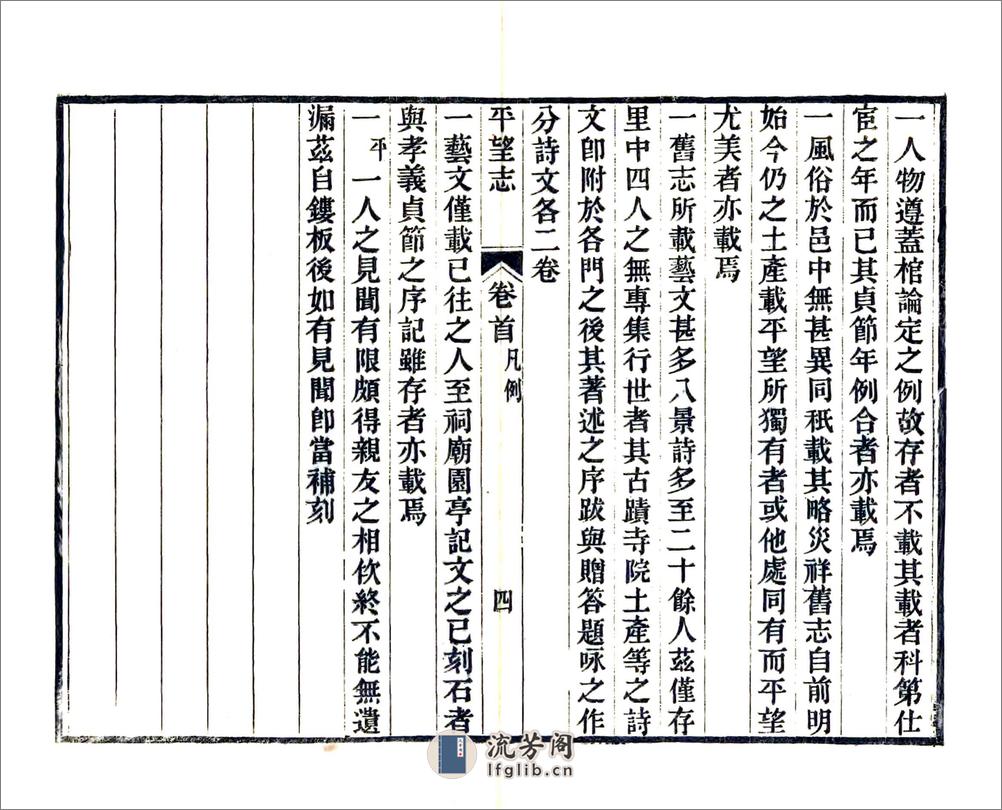 一人物遵蓋棺論定之例故存者不載其載者科第仕
宦之年而已其貞節年例合者亦載焉
一風俗於邑中無甚異同秖載其略災祥舊志自前明
始今仍之土產載平望所獨有者或他處同有而平望
尤美者亦載焉
一舊志所載藝文甚多八景詩多至二十餘人茲僅存
里中四人之無專集行世者其古蹟寺院土產等之詩
文卽附於各門之後其著述之序跋與贈答題咏之作
分詩文各二卷
平望志 卷首 凡例 四
一藝文僅載已往之人至祠廟園亭記文之已刻石者
與孝義貞節之序記雖存者亦載焉
一平一人之見聞有限頗得親友之相佽終不能無遺
漏茲自鏤板後如有見聞卽當補刻
流芳阁
lfglib.cn